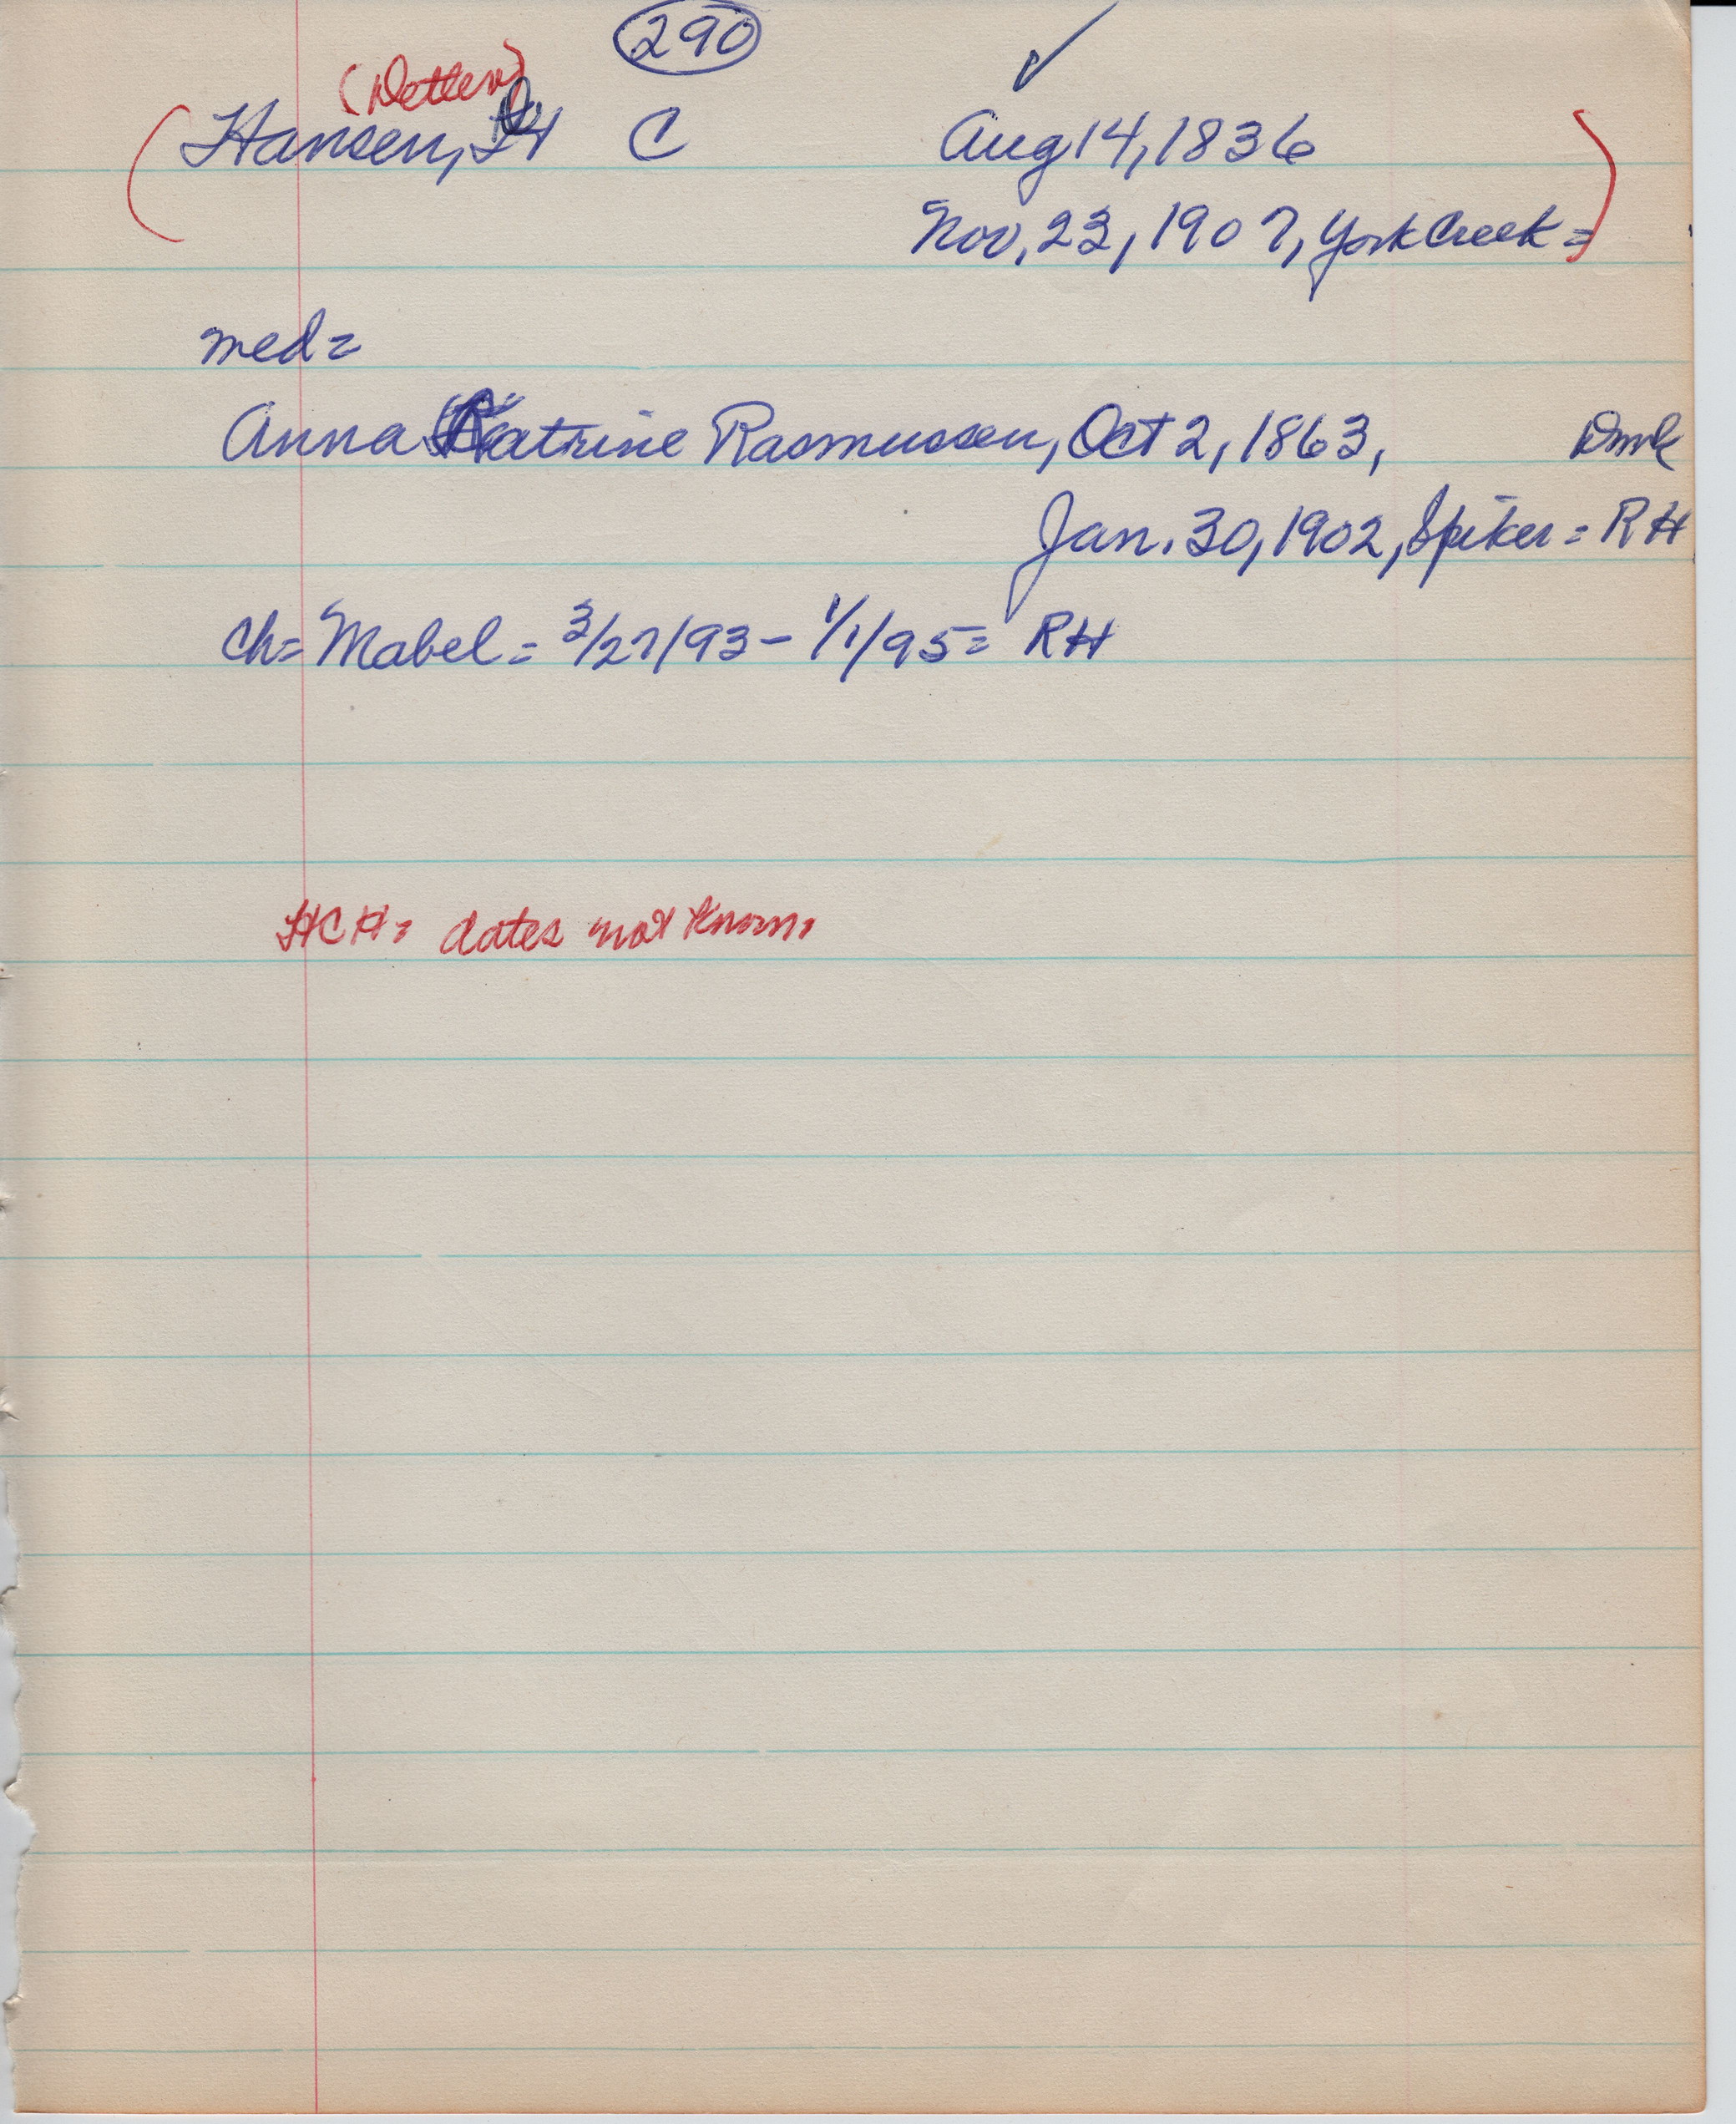 290 ✓
(Detlev)
(Hansen, H C Aug 14, 1836
Nov, 23, 1907, York Creek =)
med =
Anna Katrine Rasmussen, Oct 2, 1863, Dmk
Jan. 30, 1902, Spiker = RH
Ch = Mabel = 3/27/93 - 1/1/95 = RH
HCH = dates not known.